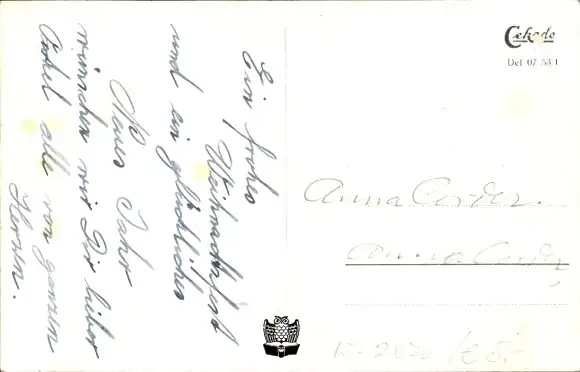 Ein frohes
Weihnachtsfest
und ein glückliches
Neues Jahr
wünschen wir Dir lieber
Onkel alle von ganzen
Herzen.
Cekade
Del 07 53 1
Anna Corder.
Anna Corder